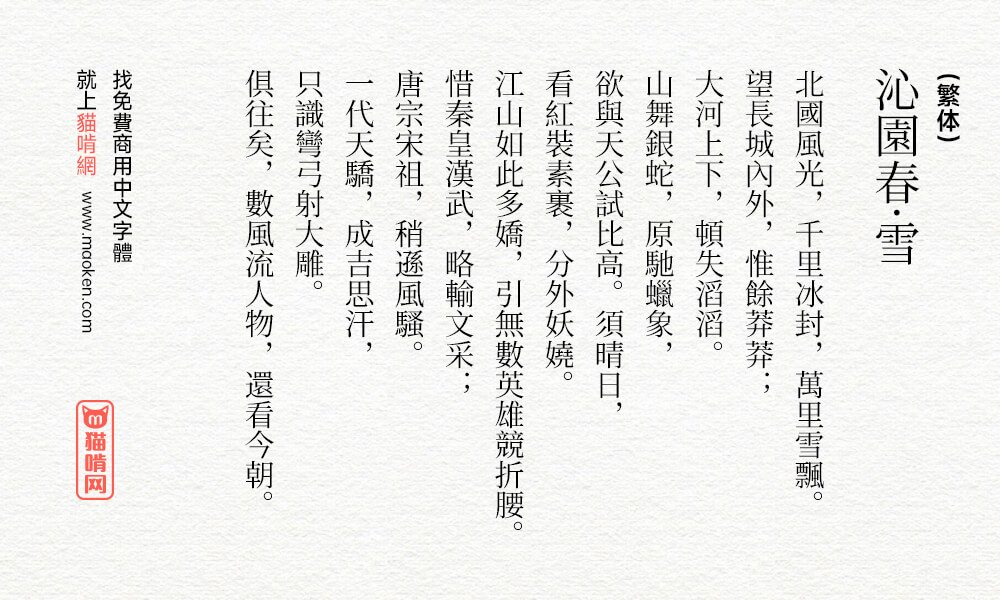 (繁体)
沁園春·雪
北國風光，千里冰封，萬里雪飄。
望長城內外，惟餘莽莽；
大河上下，頓失滔滔。
山舞銀蛇，原馳蠟象，
欲與天公試比高。須晴日，
看紅裝素裹，分外妖嬈。
江山如此多嬌，引無數英雄競折腰。
惜秦皇漢武，略輸文采；
唐宗宋祖，稍遜風騷。
一代天驕，成吉思汗，
只識彎弓射大雕。
俱往矣，數風流人物，還看今朝。
找免費商用中文字體
就上貓啃網 www.maoken.com
猫啃网